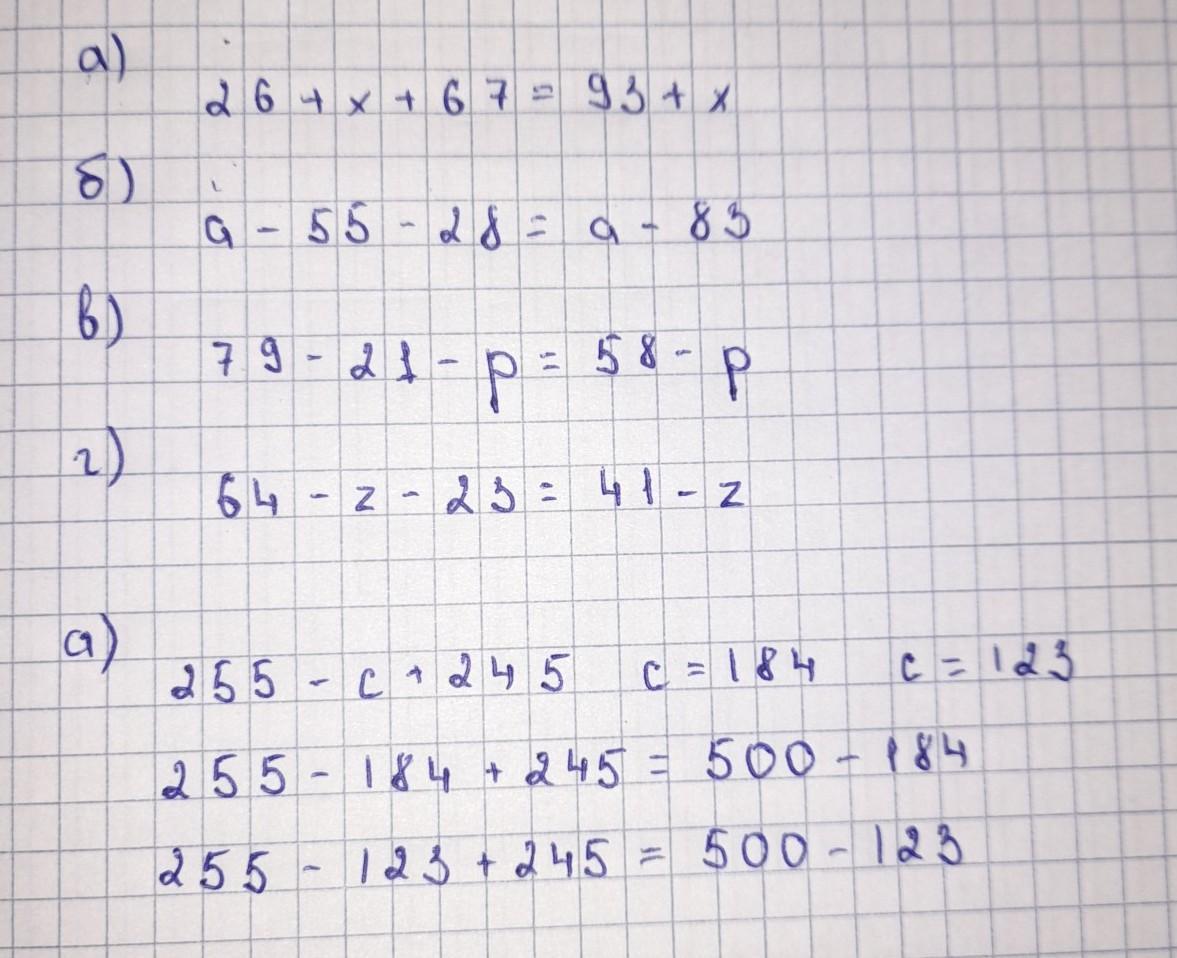 а)
26 + x + 67 = 93 + x
б)
a - 55 - 28 = a - 83
в)
79 - 21 - p = 58 - p
г)
64 - z - 23 = 41 - z
а)
255 - c + 245 c = 184 c = 123
255 - 184 + 245 = 500 - 184
255 - 123 + 245 = 500 - 123